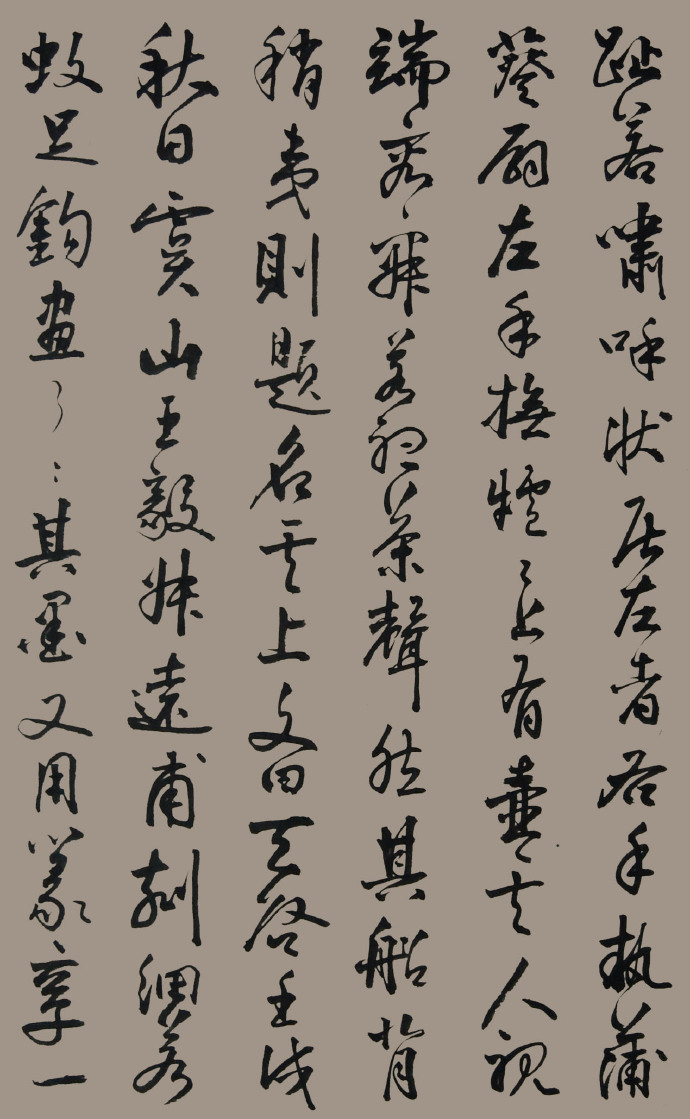 趾若嘯呼狀居左者右手執蒲
葵扇左手撫爐々上有壺其人視
端容寂若聽茶聲然其船背
稍夷則題名其上文曰天啟壬戌
秋日虞山王毅叔遠甫刻細若
蚊足鈎畫了々其墨又用篆章一